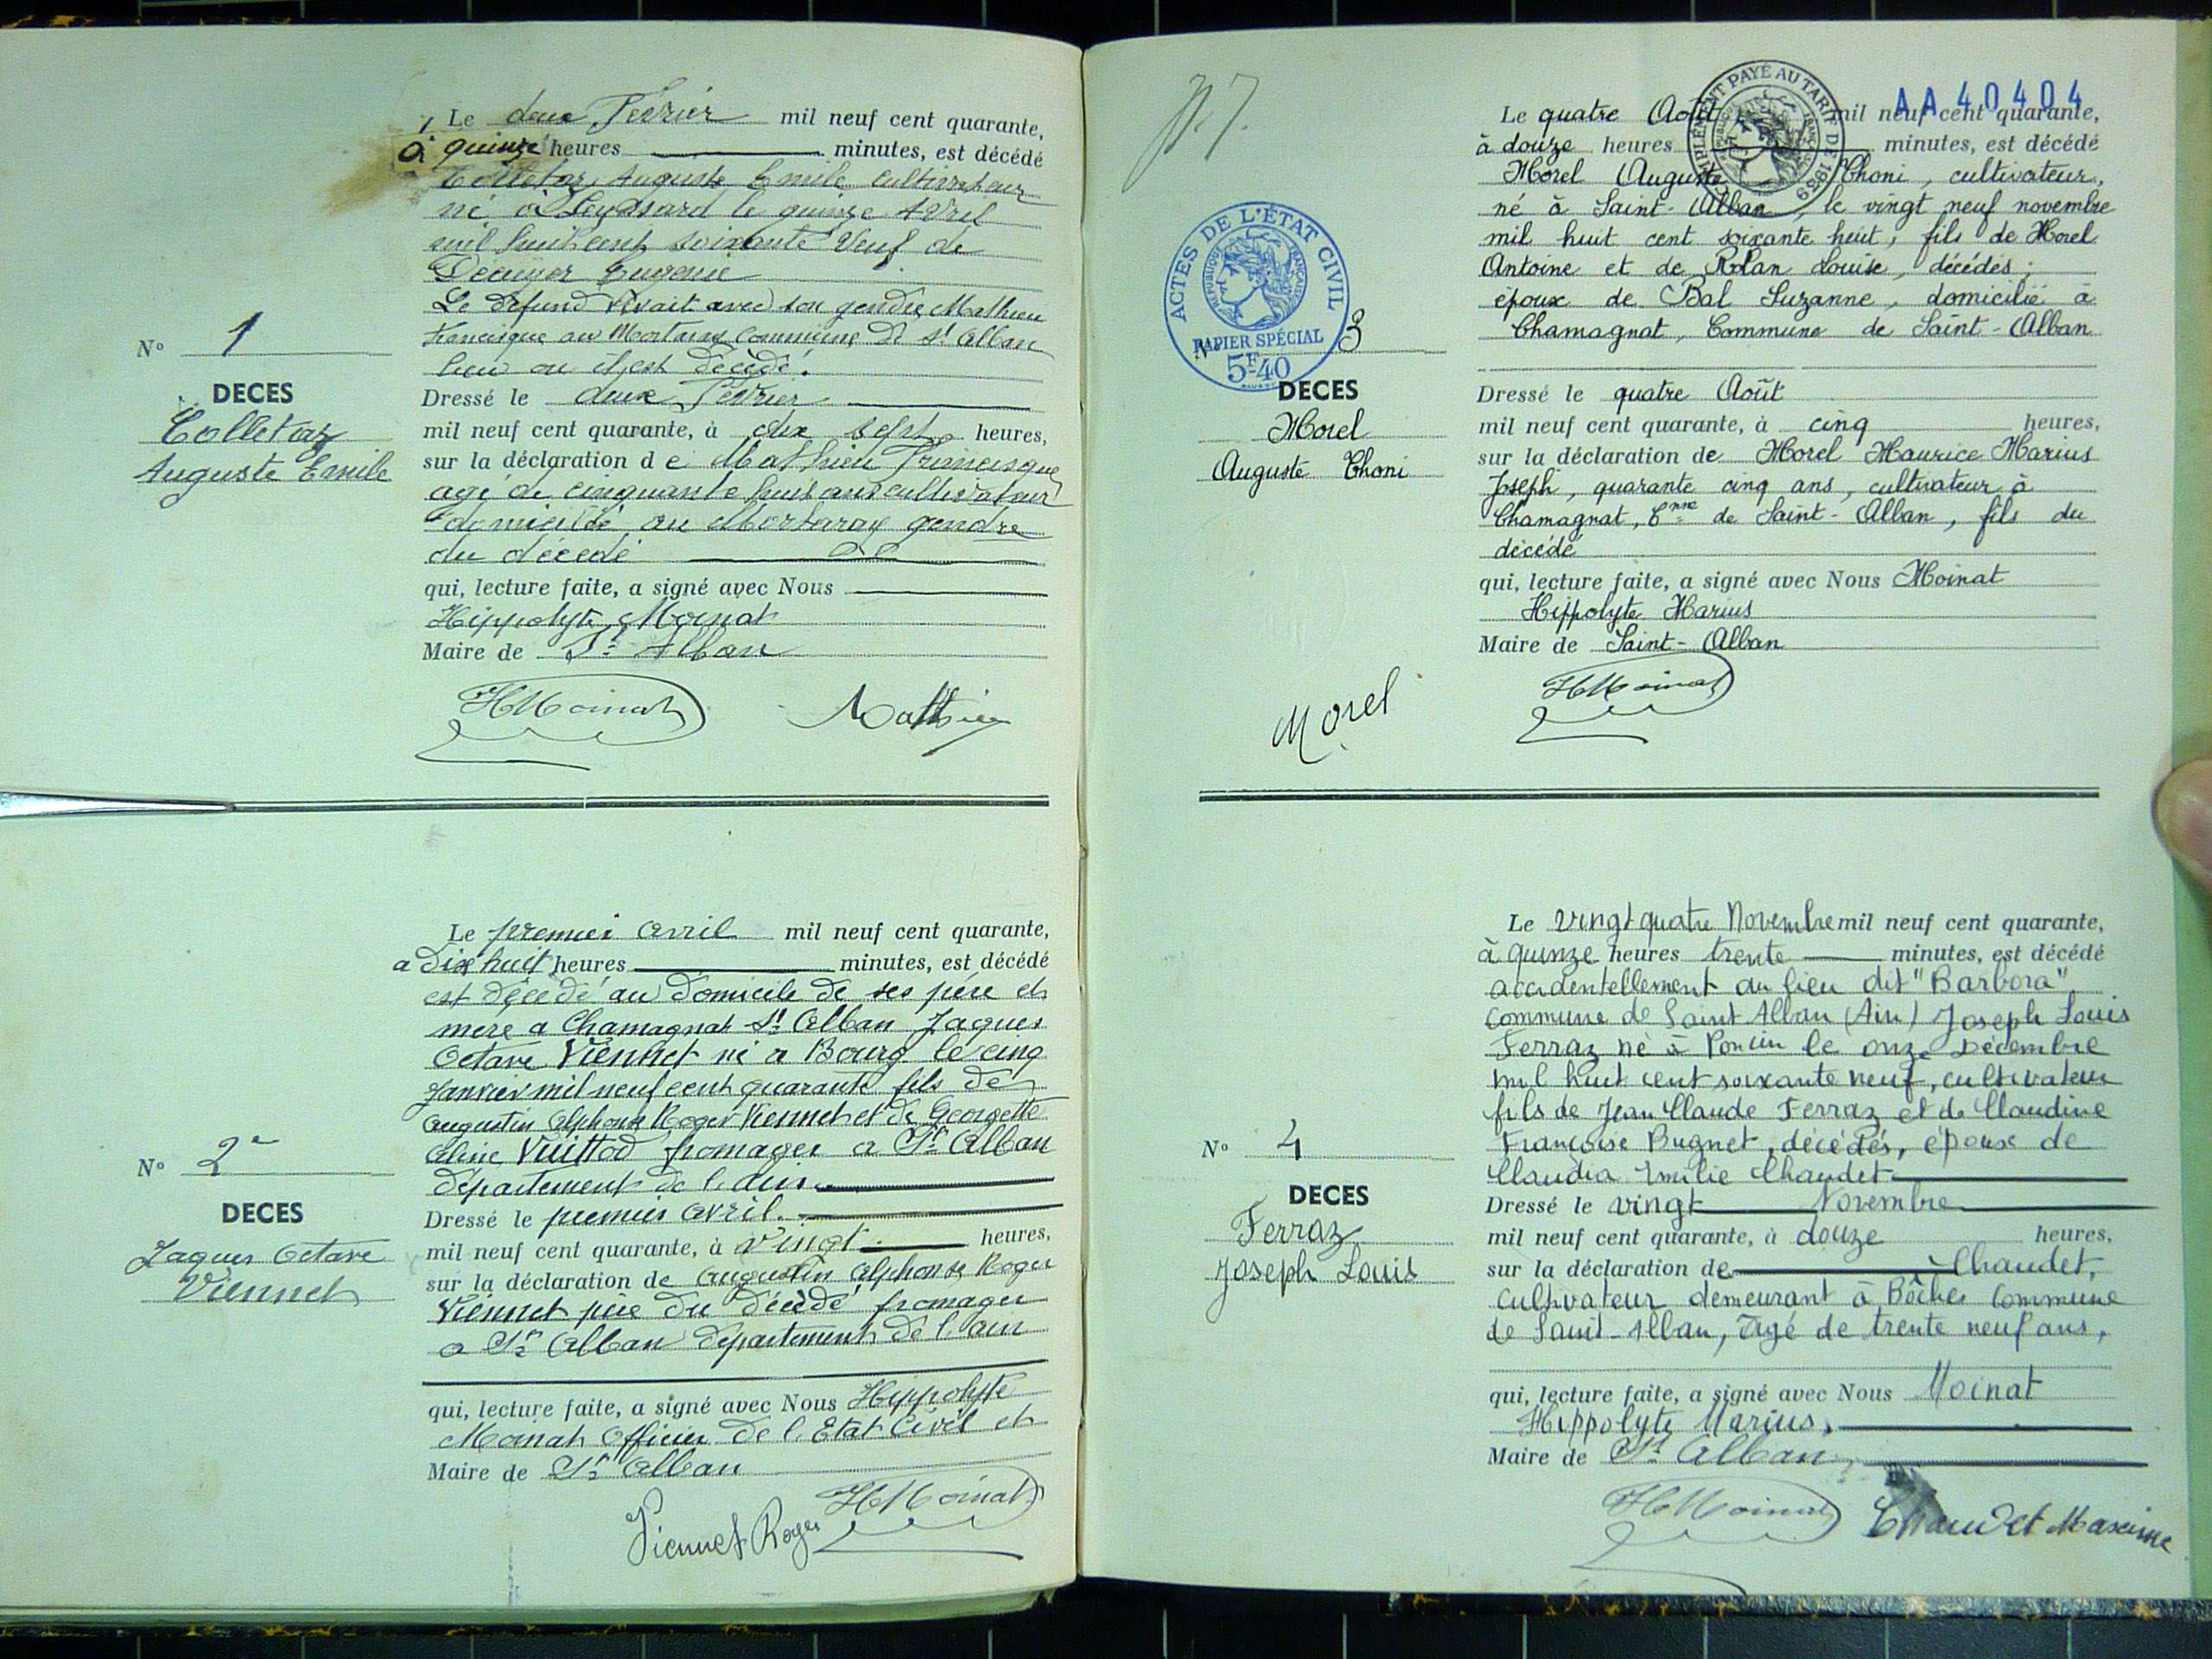 Le deux Février mil neuf cent quarante,
à quinze heures minutes, est décédé
Colletaz Auguste Emile cultivateur
né à Leyssard le quinze Avril
mil huit cent soixante Veuf de
Decuyer Eugenie
Le défund vivait avec son gendre Mathieu
Francisque au Mortaray commune de St Alban
lieu ou il est décédé.
N° 1
DECES
Colletaz
Auguste Emile
Dressé le deux Février
mil neuf cent quarante, à dix sept heures,
sur la déclaration de Mathieu Francisque
agé de cinquante huit ans cultivateur
domicilié au Mortaray gendre
du décédé
qui, lecture faite, a signé avec Nous
Hippolyte Moinat
Maire de St Alban
HMoinat Mathieu
Le premier avril mil neuf cent quarante,
a Dix huit heures minutes, est décédé
est décédé au domicile de ses père et
mere a Chamagnat St Alban Jaques
Octave Viennet né a Bourg le cinq
Janvier mil neuf cent quarante fils de
Augustin Alphonse Roger Viennet et de Georgette
Aline Vuittod fromager a St Alban
département de l'ain
N° 2
DECES
Jaques Octave
Viennet
Dressé le premier avril.
mil neuf cent quarante, à vingt heures,
sur la déclaration de Augustin Alphonse Roger
Viennet père du décédé fromager
a St Alban département de l'ain
qui, lecture faite, a signé avec Nous Hippolyte
Moinat Officier de l'Etat Civil et
Maire de St Alban
Viennet Roger HMoinat
COMPLÉMENT PAYÉ AU TARIF DE 1939
AA 40404
Le quatre Août mil neuf cent quarante,
à douze heures minutes, est décédé
Morel Auguste Thoni, cultivateur,
né à Saint-Alban, le vingt neuf novembre
mil huit cent soixante huit, fils de Morel
Antoine et de Rolan Louise, décédés;
époux de Bal Suzanne, domicilié à
Chamagnat, Commune de Saint-Alban
ACTES DE L'ÉTAT CIVIL
RÉPUBLIQUE FRANÇAISE
PAPIER SPÉCIAL
5F40
N° 3
DECES
Morel
Auguste Thoni
Dressé le quatre Août
mil neuf cent quarante, à cinq heures,
sur la déclaration de Morel Maurice Marius
Joseph, quarante cinq ans, cultivateur à
Chamagnat, Cnne de Saint-Alban, fils du
décédé
qui, lecture faite, a signé avec Nous Moinat
Hippolyte Marius
Maire de Saint-Alban
Morel HMoinat
Le vingt quatre Novembre mil neuf cent quarante,
à quinze heures trente minutes, est décédé
accidentellement au lieu dit "Barbora",
commune de Saint Alban (Ain) Joseph Louis
Ferraz né à Poncin le onze Décembre
mil huit cent soixante neuf, cultivateur
fils de Jean Claude Ferraz et de Claudine
Françoise Bugnet, décédés, époux de
Claudia Emilie Chaudet
N° 4
DECES
Ferraz
Joseph Louis
Dressé le vingt Novembre
mil neuf cent quarante, à douze heures,
sur la déclaration de Chaudet,
cultivateur demeurant à Bôches Commune
de Saint-Alban, âgé de trente neuf ans,
qui, lecture faite, a signé avec Nous Moinat
Hippolyte Marius,
Maire de St Alban
HMoinat Chaudet Maxime